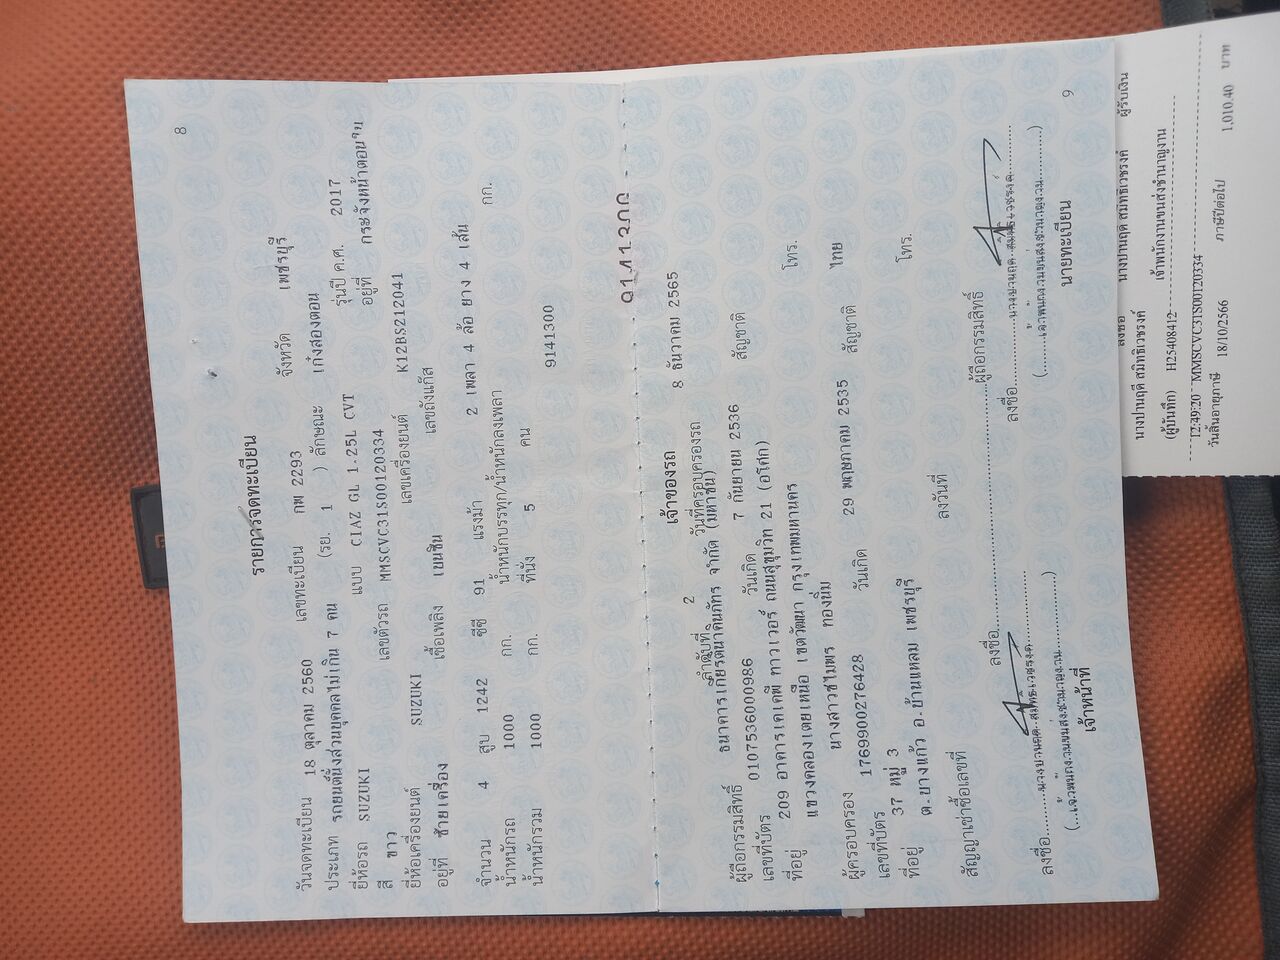 8
รายการจดทะเบียน
วันจดทะเบียน 18 ตุลาคม 2560 เลขทะเบียน กพ 2293 จังหวัด เพชรบุรี
ประเภท รถยนต์นั่งส่วนบุคคลไม่เกิน 7 คน (รย. 1 ) ลักษณะ เก๋งสองตอน
ยี่ห้อรถ SUZUKI แบบ CIAZ GL 1.25L CVT รุ่นปี ค.ศ. 2017
สี ขาว เลขตัวรถ MMSCVC31S00120334 อยู่ที่ กระจังหน้าตอนใน
ยี่ห้อเครื่องยนต์ SUZUKI เลขเครื่องยนต์ K12BS212041
อยู่ที่ ซ้ายเครื่อง เชื้อเพลิง เบนซิน เลขถังแก๊ส
จำนวน 4 สูบ 1242 ซีซี 91 แรงม้า 2 เพลา 4 ล้อ ยาง 4 เส้น
น้ำหนักรถ 1000 กก. น้ำหนักบรรทุก/น้ำหนักลงเพลา กก.
น้ำหนักรวม 1000 กก. ที่นั่ง 5 คน
9141300
9141300
เจ้าของรถ
ลำดับที่ 2 วันที่ครอบครองรถ 8 ธันวาคม 2565
ผู้ถือกรรมสิทธิ์ ธนาคารเกียรตินาคินภัทร จำกัด (มหาชน)
เลขที่บัตร 0107536000986 วันเกิด 7 กันยายน 2536 สัญชาติ
ที่อยู่ 209 อาคารเคเคพี ทาวเวอร์ ถนนสุขุมวิท 21 (อโศก)
แขวงคลองเตยเหนือ เขตวัฒนา กรุงเทพมหานคร โทร.
ผู้ครอบครอง นางสาวชไมพร ทองนิ่ม
เลขที่บัตร 1769900276428 วันเกิด 29 พฤษภาคม 2535 สัญชาติ ไทย
ที่อยู่ 37 หมู่ 3
ต.บางแก้ว อ.บ้านแหลม เพชรบุรี โทร.
สัญญาเช่าซื้อเลขที่ ลงวันที่
ลงชื่อ ผู้ถือกรรมสิทธิ์
ลงชื่อ นางปานฤดี สมิทธิเวชรงค์ ลงชื่อ นางปานฤดี สมิทธิเวชรงค์
(เจ้าพนักงานขนส่งชำนาญงาน) (เจ้าพนักงานขนส่งชำนาญงาน)
เจ้าหน้าที่ นายทะเบียน
9
ลงชื่อ นางปานฤดี สมิทธิเวชรงค์ ผู้รับเงิน
นางปานฤดี สมิทธิเวชรงค์ เจ้าพนักงานขนส่งชำนาญงาน
(ผู้บันทึก) H25408412
12:49:20 MMSCVC31S00120334
วันสิ้นอายุภาษี 18/10/2566 ภาษีปีต่อไป 1,010.40 บาท